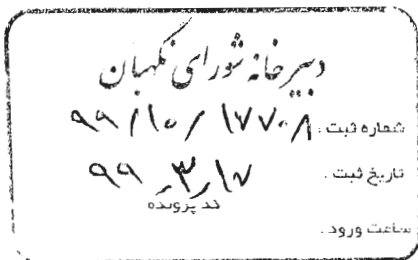 دبیرخانه شورای نگهبان
شماره ثبت: ۹۹/۱۰/۱۷۷۰۸
تاریخ ثبت: ۹۹٫۳٫۱۷
کد پرونده
ساعت ورود: